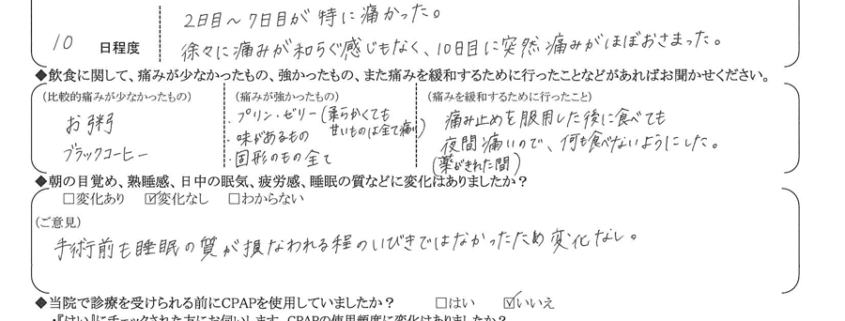 2日目～7日目が特に痛かった。
10 日程度
徐々に痛みが和らぐ感じもなく、10日目に突然痛みがほぼおさまった。
◆飲食に関して、痛みが少なかったもの、強かったもの、また痛みを緩和するために行ったことなどがあればお聞かせください。
(比較的痛みが少なかったもの)
お粥
ブラックコーヒー
(痛みが強かったもの)
・プリン・ゼリー(柔らかくても
甘いものは全て痛い)
・味があるもの
・固形のもの全て
(痛みを緩和するために行ったこと)
痛み止めを服用した後に食べても
夜間痛いので、何も食べないようにした。
(薬がきれた間)
◆朝の目覚め、熟睡感、日中の眠気、疲労感、睡眠の質などに変化はありましたか？
□変化あり ☑変化なし □わからない
(ご意見)
手術前も睡眠の質が損なわれる程のいびきではなかったため変化なし。
◆当院で診療を受けられる前にCPAPを使用していましたか？ □はい ☑いいえ
・『はい』にチェックされた方にお伺いします。CPAPの使用頻度に変化はありましたか？